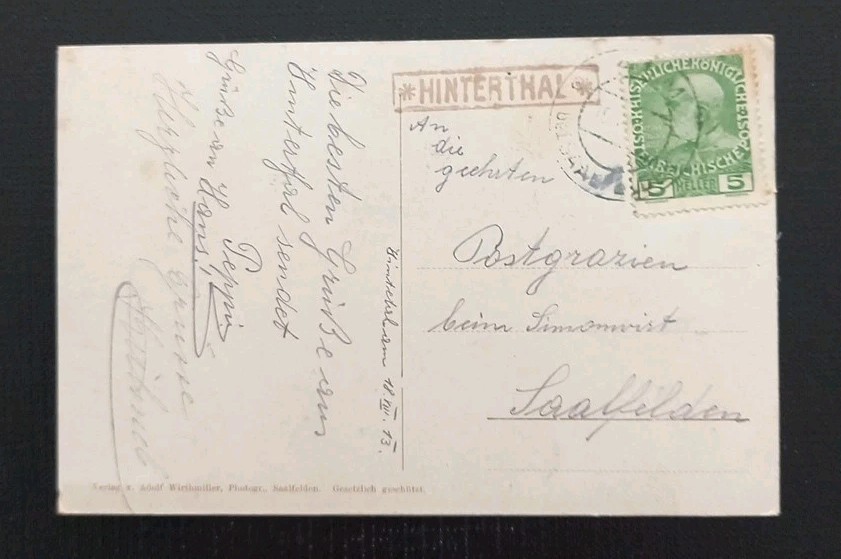 *HINTERTHAL*
KAISERLICHEKÖNIGLICHE
ÖSTERREICHISCHE
5 HELLER 5
An
die
geehrten
Postgrazien
beim Simonwirt
Saalfelden
Hintertal am 18. VIII. 13.
Die besten Grüße aus
Hintertal sendet
Peppi
Grüße an Hans!
Herzliche Grüsse
Verlag v. Adolf Wirthmiller, Photogr., Saalfelden. Gesetzlich geschützt.